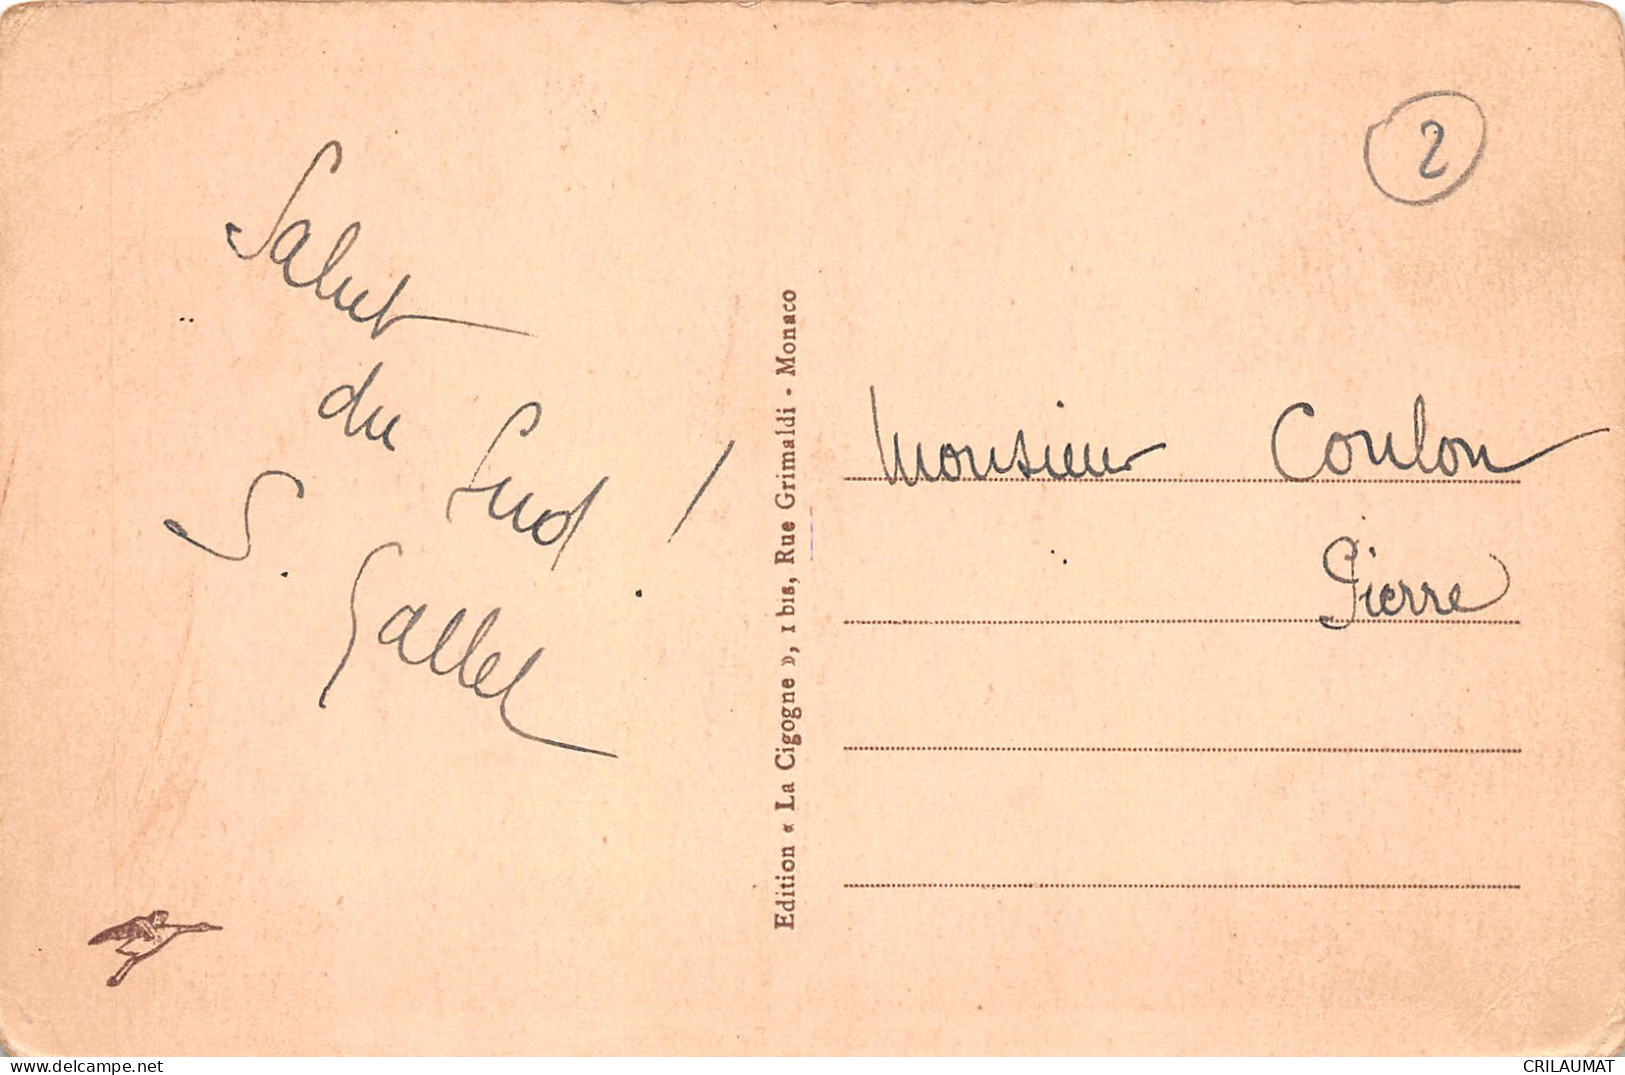 Salut
du Sud !
S. Gallet
Edition « La Cigogne », 1 bis, Rue Grimaldi - Monaco
2
Monsieur Coulon
Pierre
www.delcampe.net
CRILAUMAT